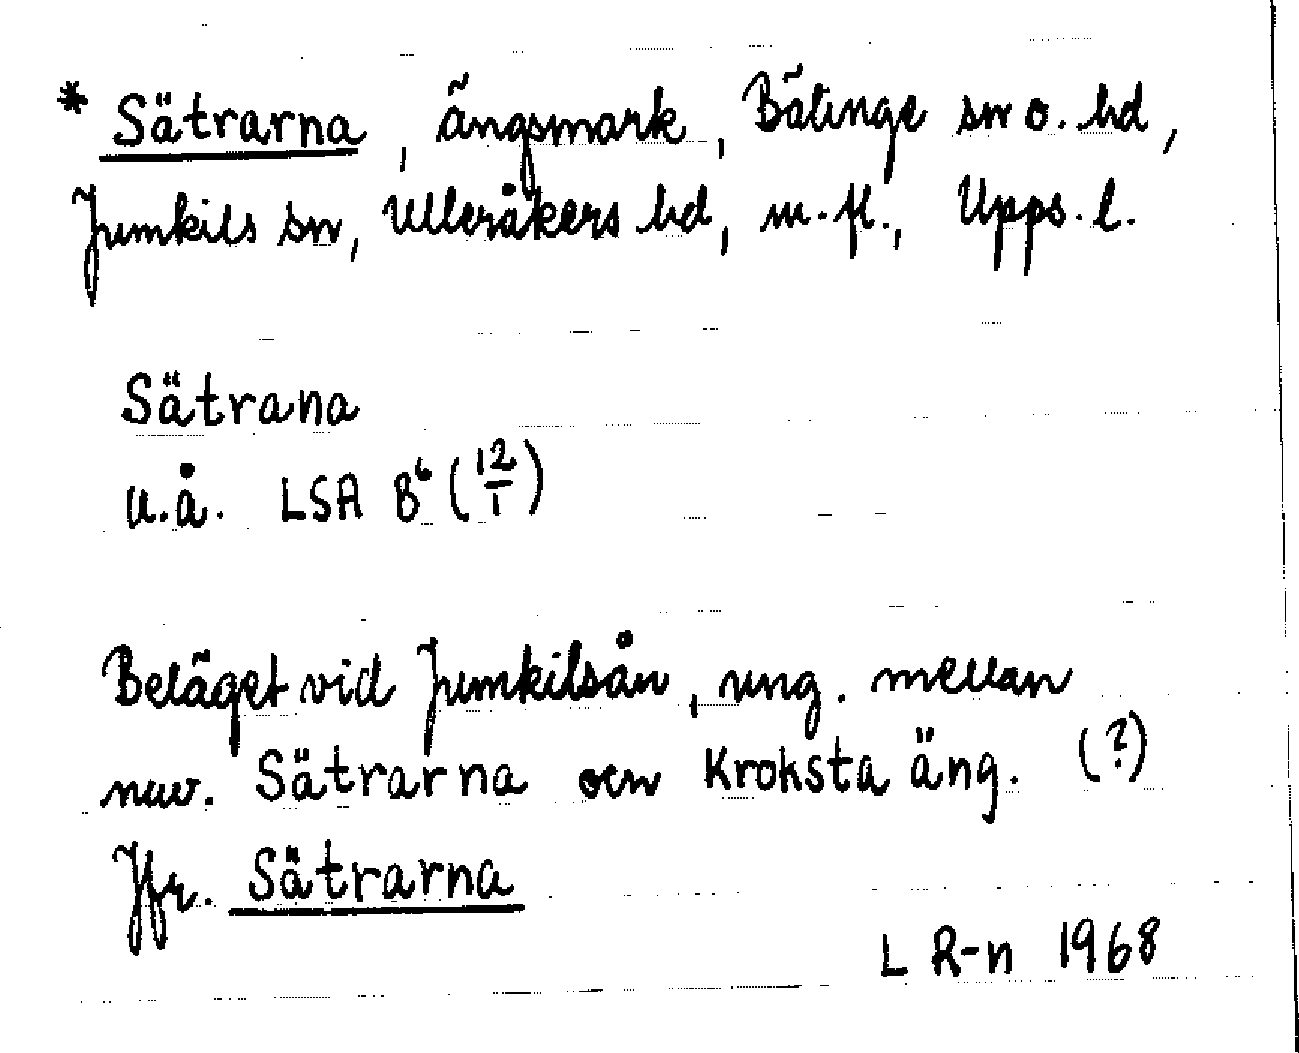 * Sätrarna, ängsmark, Bälinge sn o. hd,
Jumkils sn, Ulleråkers hd, m.fl., Upps. l.
Sätrana
u.å. LSA B⁶ (12/1)
Beläget vid Jumkilsån, ung. mellan
nuv. Sätrarna och Kroksta äng. (?)
Jfr. Sätrarna
L R-n 1968